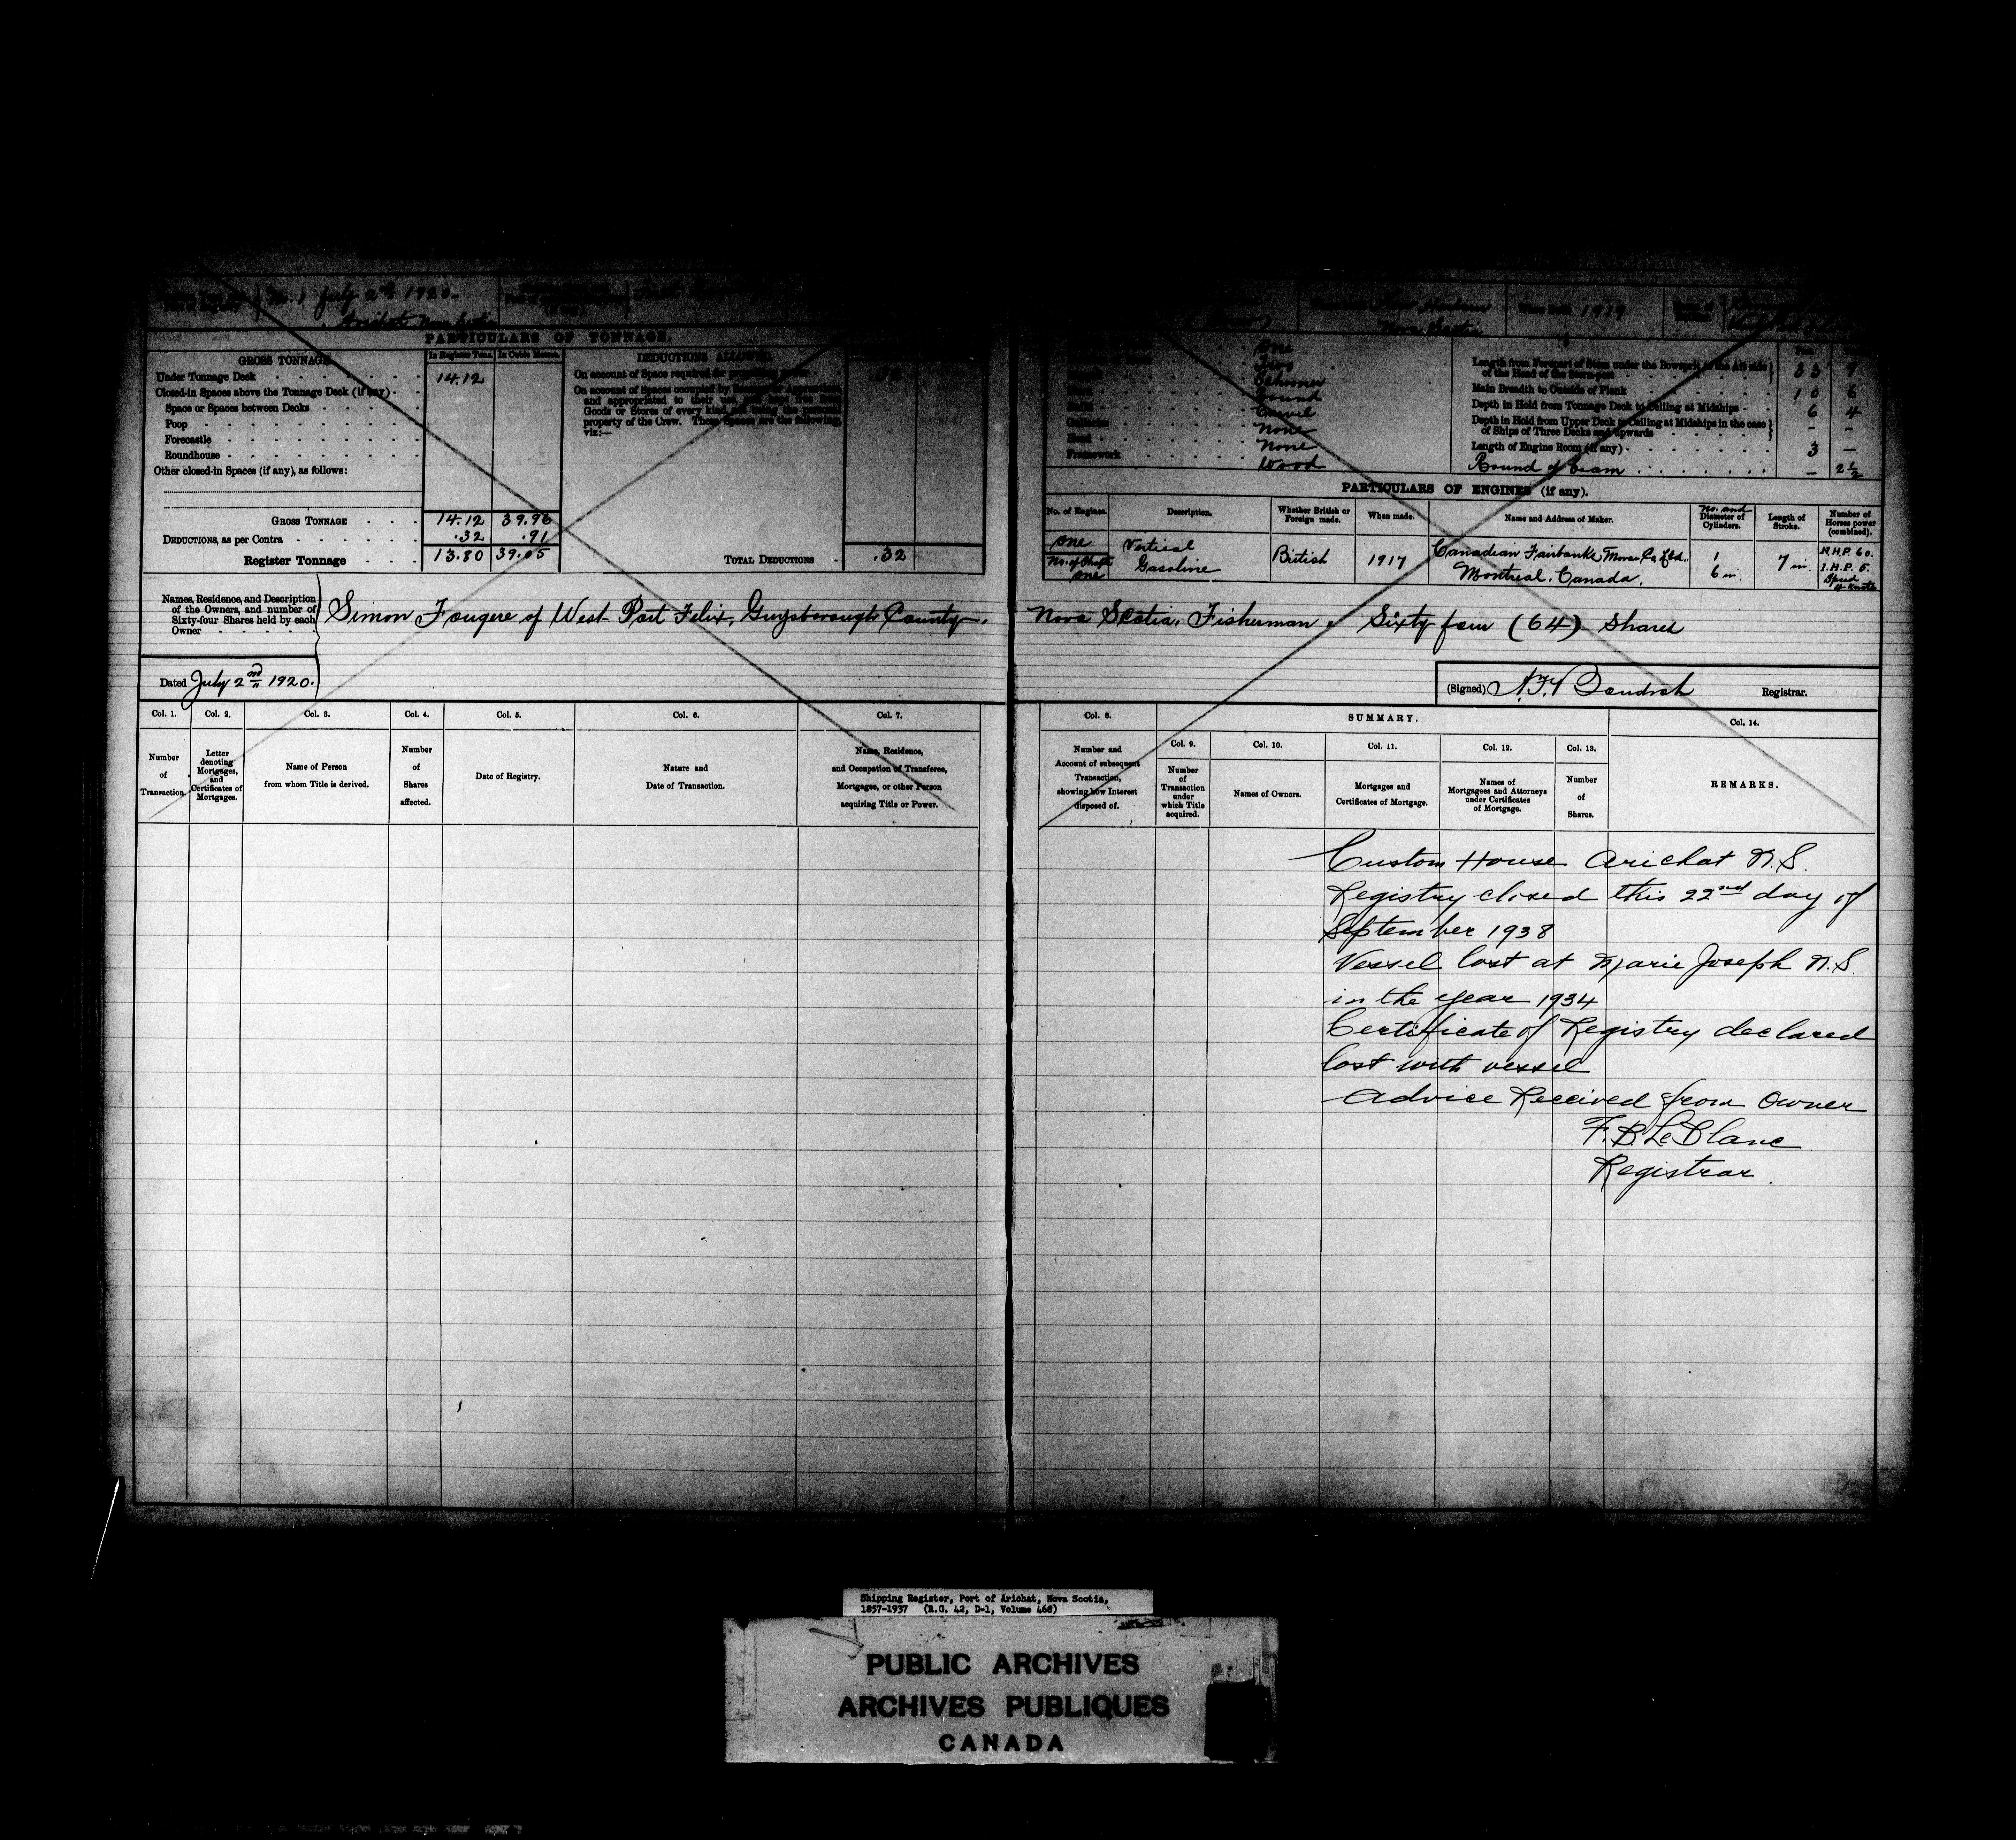 No. 1 July 2nd 1920.
Arichat Nova Scotia
Nova Scotia
1919
PARTICULARS OF TONNAGE.
GROSS TONNAGE.
In Register Tons.
In Cubic Metres.
DEDUCTIONS ALLOWED.
Under Tonnage Deck
14.12
Closed-in Spaces above the Tonnage Deck (if any)
Space or Spaces between Decks
Poop
Forecastle
Roundhouse
Other closed-in Spaces (if any), as follows:
On account of Space required for propelling power
On account of Spaces occupied by Seamen or Apprentices,
and appropriated to their use, and kept free from
Goods or Stores of every kind, not being the personal
property of the Crew. These Spaces are the following,
viz:—
GROSS TONNAGE 14.12 39.96
DEDUCTIONS, as per Contra .32 .91
Register Tonnage 13.80 39.05
TOTAL DEDUCTIONS .32
One
Two
Schooner
Round
Carvel
Galleries None
Head None
Framework Wood
Length from Forepart of Stem under the Bowsprit to the Aft side
of the Head of the Stern-post 33 7
Main Breadth to Outside of Plank 10 6
Depth in Hold from Tonnage Deck to Ceiling at Midships 6 4
Depth in Hold from Upper Deck to Ceiling at Midships in the case
of Ships of Three Decks and upwards - -
Length of Engine Room (if any) 3 —
Round of beam — 2½
PARTICULARS OF ENGINES (if any).
No. of Engines.
Description.
Whether British or Foreign made.
When made.
Name and Address of Maker.
No. and Diameter of Cylinders.
Length of Stroke.
Number of Horses power (combined).
One
No. of Shafts
one
Vertical
Gasoline
British
1917
Canadian Fairbanks Morse Co. Ltd.
Montreal, Canada.
1
6 in.
7 in.
N.H.P. 60.
I.H.P. 5.
Speed
4 Knots
Names, Residence, and Description
of the Owners, and number of
Sixty-four Shares held by each
Owner
Simon Fougere of West Port Felix, Guysborough County, Nova Scotia, Fisherman, Sixty four (64) Shares
Dated July 2nd 1920.
(Signed)
Registrar.
Col. 1.
Number of Transaction.
Col. 2.
Letter denoting Mortgages, and Certificates of Mortgages.
Col. 3.
Name of Person from whom Title is derived.
Col. 4.
Number of Shares affected.
Col. 5.
Date of Registry.
Col. 6.
Nature and Date of Transaction.
Col. 7.
Name, Residence, and Occupation of Transferee, Mortgagee, or other Person acquiring Title or Power.
Col. 8.
Number and Account of subsequent Transaction, showing how Interest disposed of.
SUMMARY.
Col. 9.
Number of Transaction under which Title acquired.
Col. 10.
Names of Owners.
Col. 11.
Mortgages and Certificates of Mortgage.
Col. 12.
Names of Mortgagees and Attorneys under Certificates of Mortgage.
Col. 13.
Number of Shares.
Col. 14.
REMARKS.
Custom House Arichat N.S.
Registry closed this 22nd day of
September 1938
Vessel lost at Marie Joseph N.S.
in the year 1934
Certificate of Registry declared
lost with vessel
Advice Received from Owner
F. B. LeBlanc
Registrar.
Shipping Register, Port of Arichat, Nova Scotia,
1857-1937 (R.G. 42, D-1, Volume 468)
PUBLIC ARCHIVES
ARCHIVES PUBLIQUES
CANADA